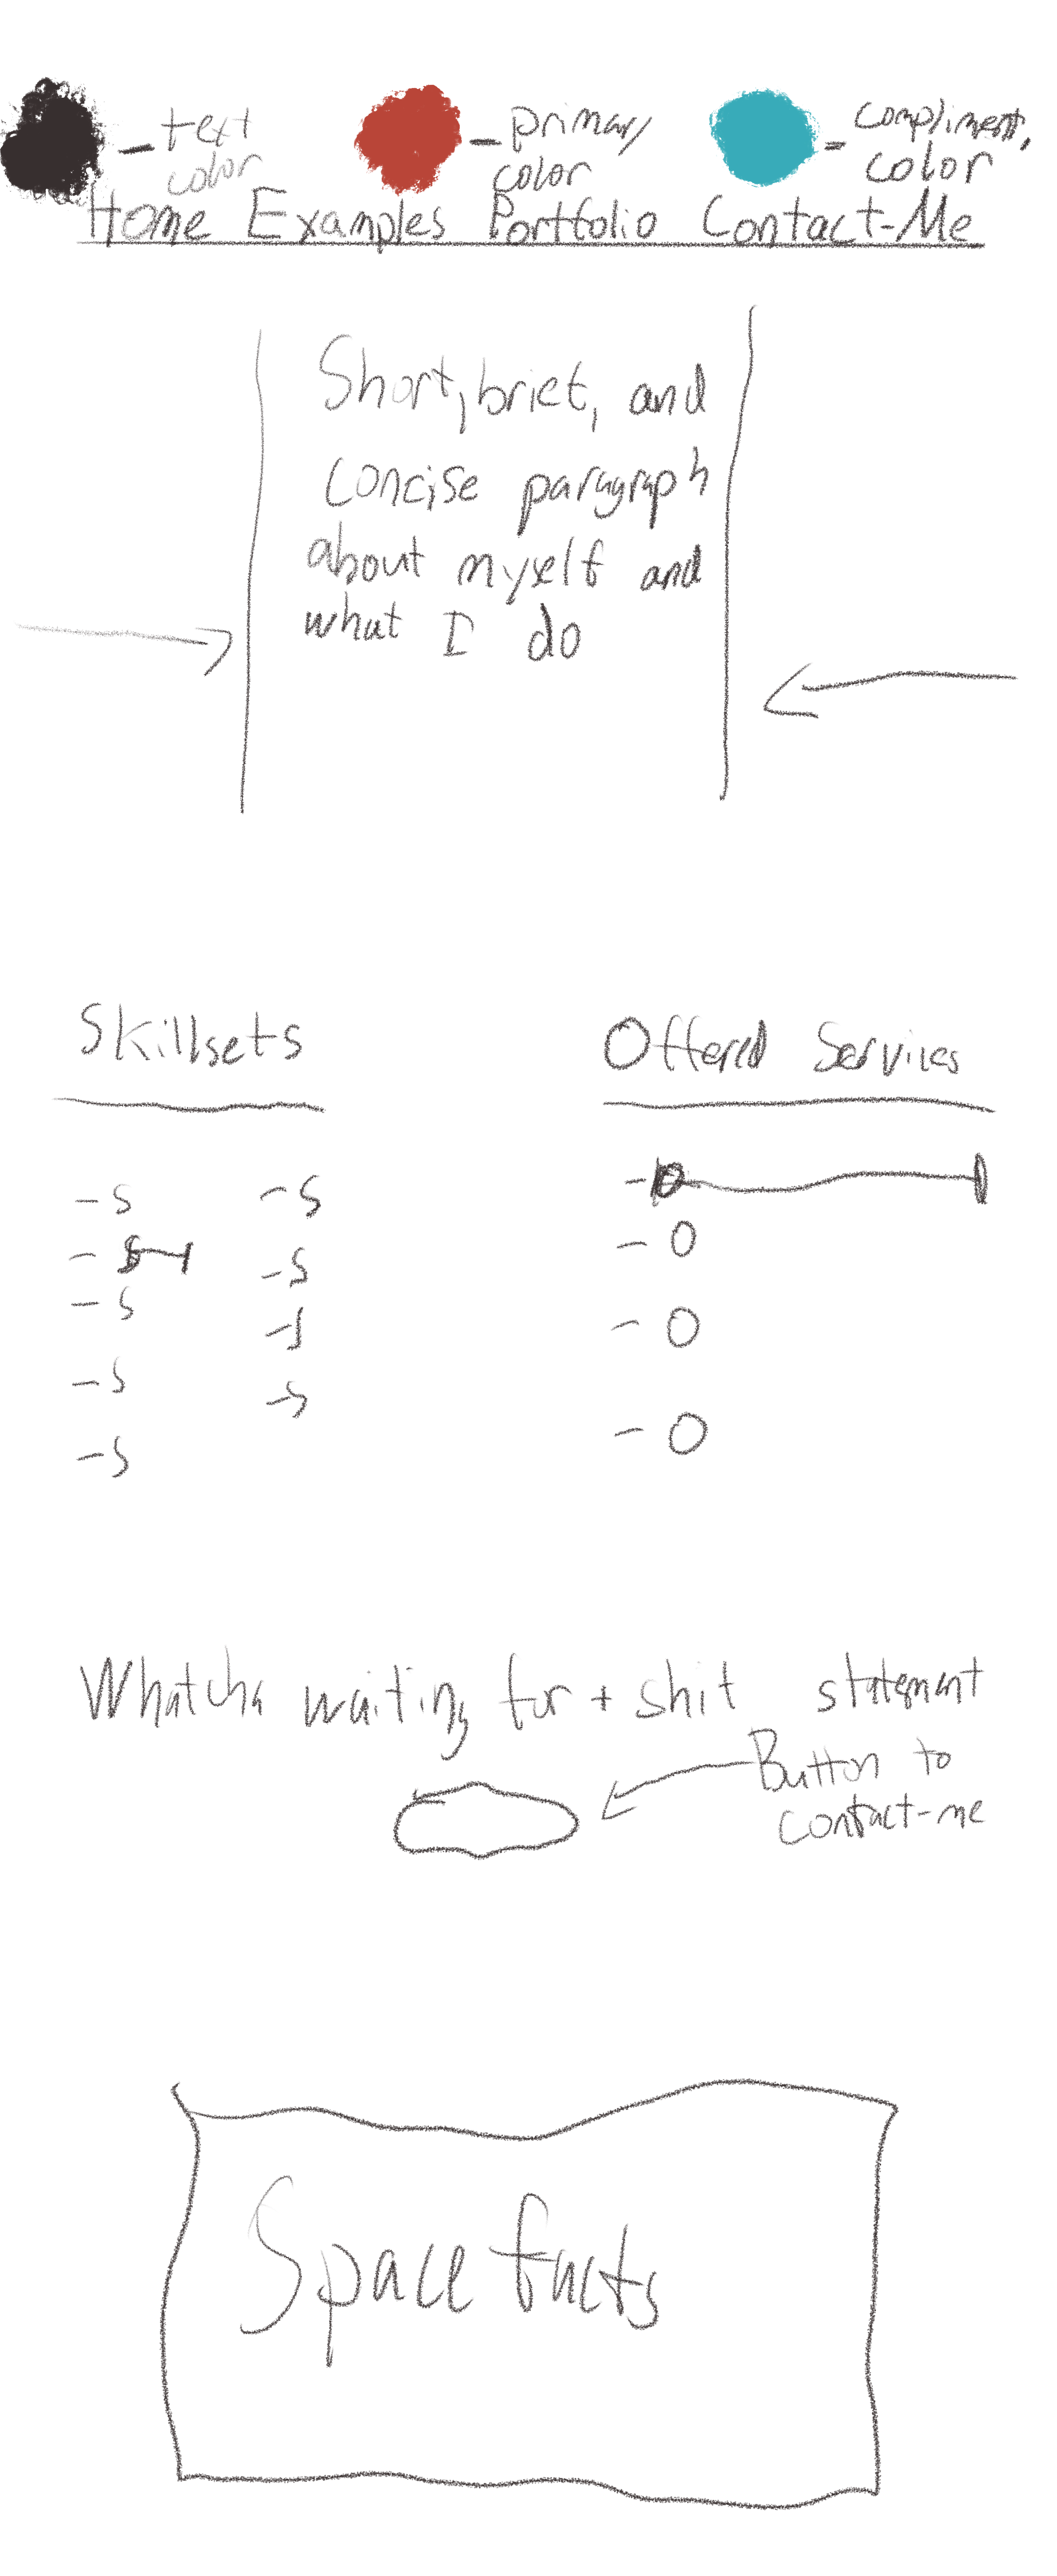 - text color
- primary color
- compliment. color
Home Examples Portfolio Contact-Me
Short, brief, and
concise paragraph
about myself and
what I do
Skillsets
Offered Services
- s
- s
- s
- s
- s
- s
- s
- s
- s
- O
- O
- O
- O
Whatcha waiting for + shit statement
Button to
contact-me
Space facts